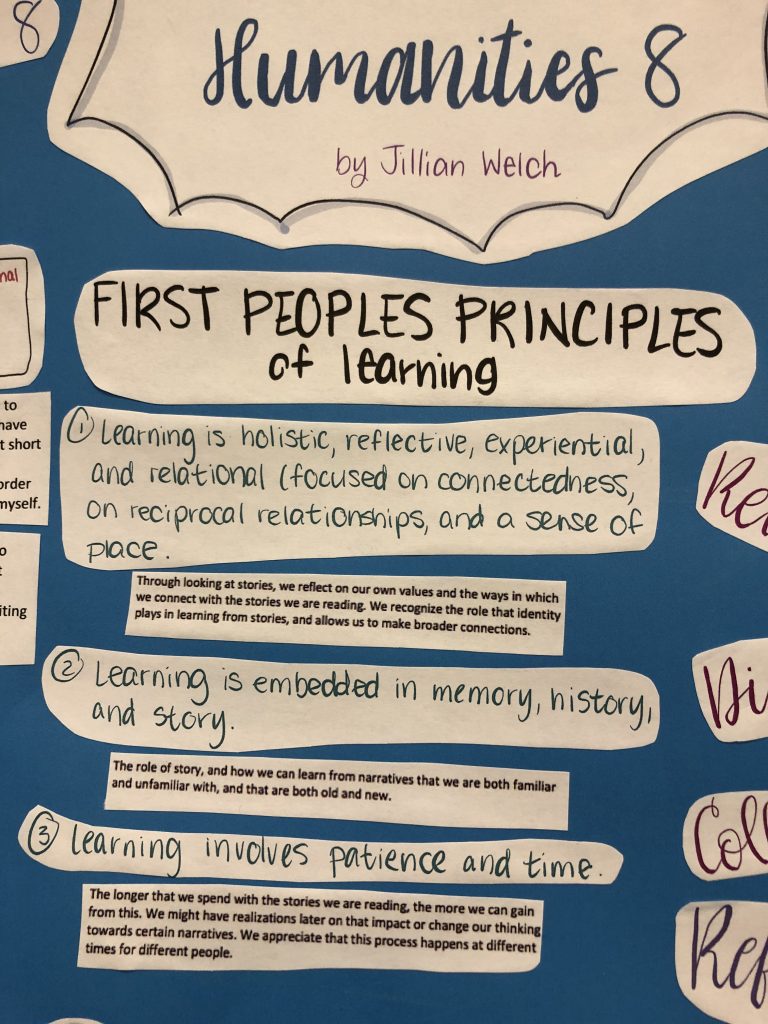 8
Humanities 8
by Jillian Welch
FIRST PEOPLES PRINCIPLES
of learning
① Learning is holistic, reflective, experiential,
and relational (focused on connectedness,
on reciprocal relationships, and a sense of
place.
Through looking at stories, we reflect on our own values and the ways in which
we connect with the stories we are reading. We recognize the role that identity
plays in learning from stories, and allows us to make broader connections.
② Learning is embedded in memory, history,
and story.
The role of story, and how we can learn from narratives that we are both familiar
and unfamiliar with, and that are both old and new.
③ Learning involves patience and time.
The longer that we spend with the stories we are reading, the more we can gain
from this. We might have realizations later on that impact or change our thinking
towards certain narratives. We appreciate that this process happens at different
times for different people.
to
have
short
order
myself.